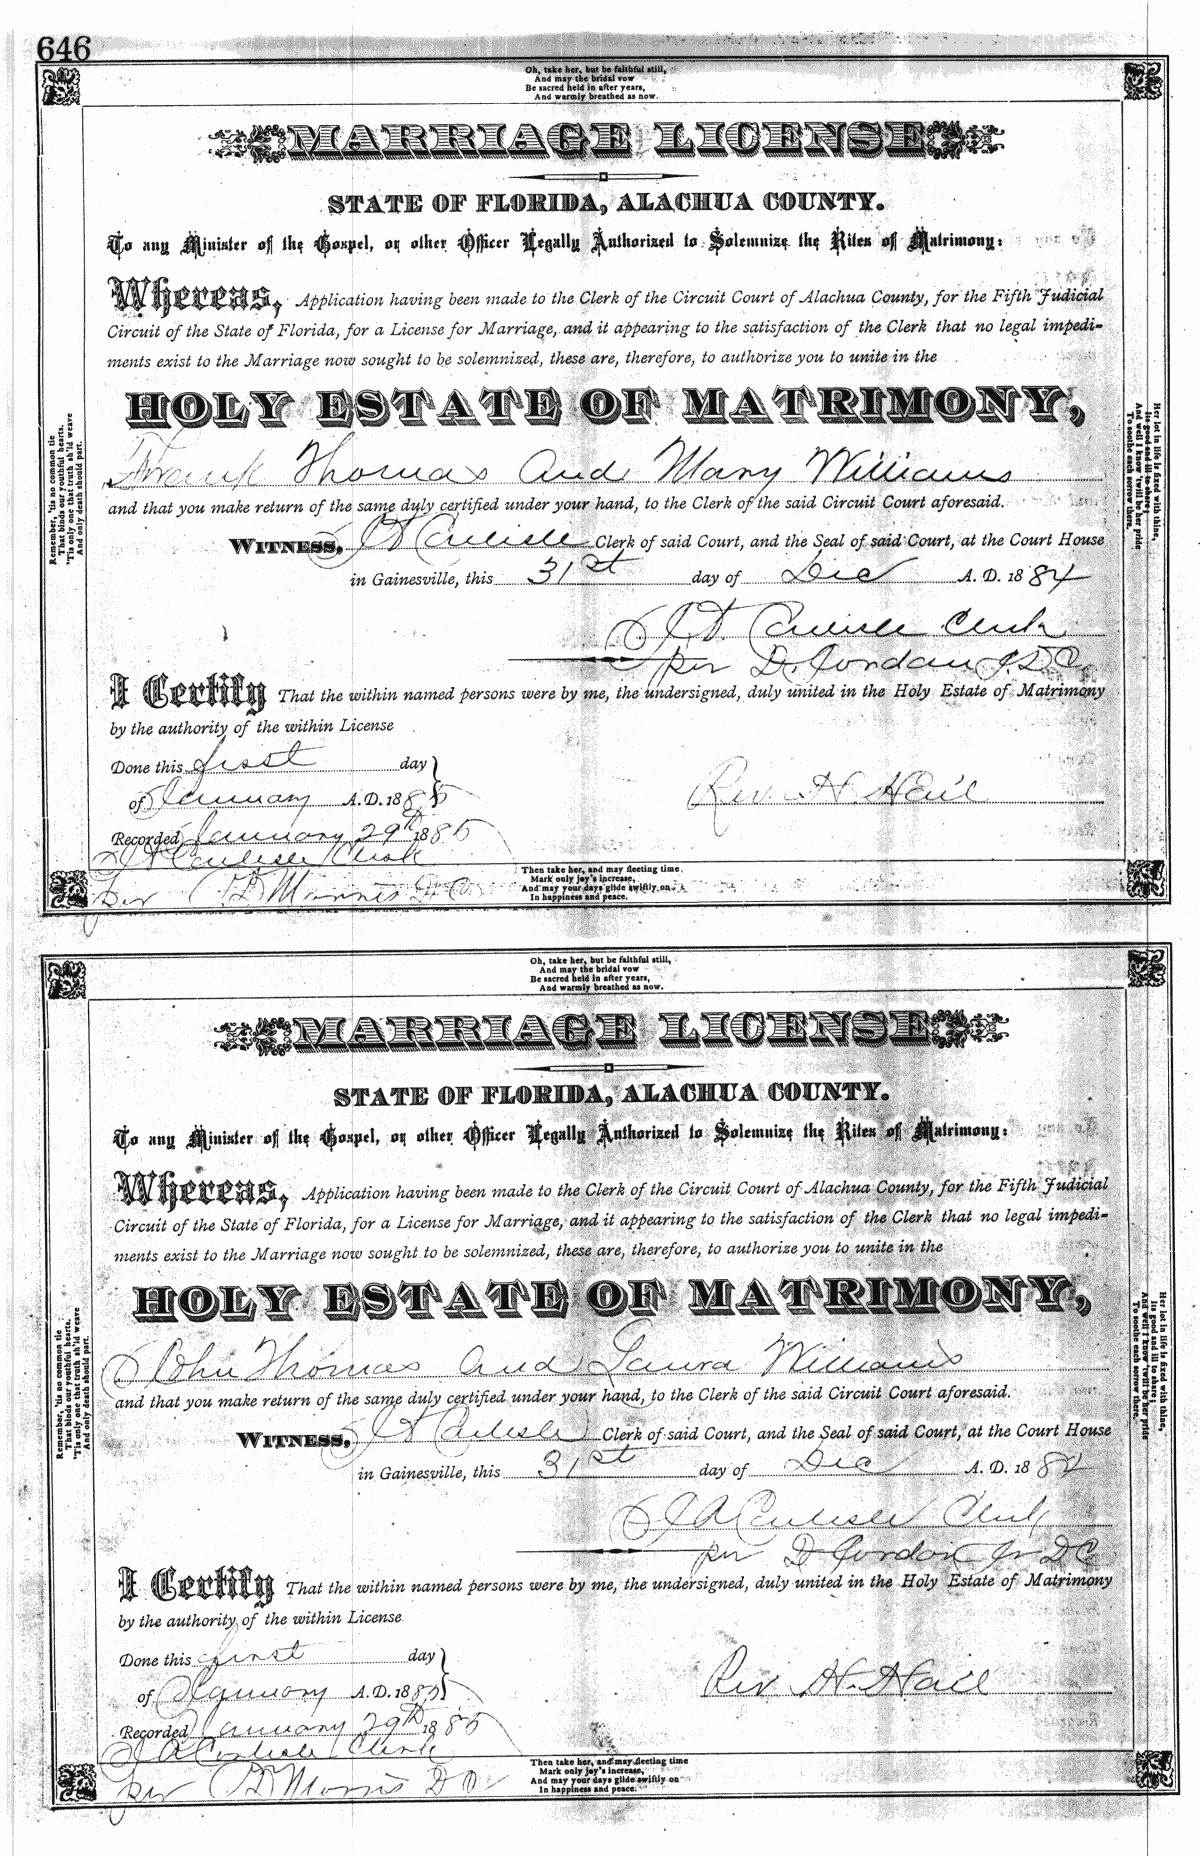 646
Oh, take her, but be faithful still,
And may the bridal vow
Be sacred held in after years,
And warmly breathed as now.
MARRIAGE LICENSE
STATE OF FLORIDA, ALACHUA COUNTY.
To any Minister of the Gospel, or other Officer Legally Authorized to Solemnize the Rites of Matrimony:
Whereas, Application having been made to the Clerk of the Circuit Court of Alachua County, for the Fifth Judicial
Circuit of the State of Florida, for a License for Marriage, and it appearing to the satisfaction of the Clerk that no legal impedi-
ments exist to the Marriage now sought to be solemnized, these are, therefore, to authorize you to unite in the
HOLY ESTATE OF MATRIMONY,
Frank Thomas and Mary Williams
and that you make return of the same duly certified under your hand, to the Clerk of the said Circuit Court aforesaid.
WITNESS, J A Carlisle Clerk of said Court, and the Seal of said Court, at the Court House
in Gainesville, this 31st day of Dec A. D. 1884
J A. Carlisle Clerk
per D. Jordan Jr D C
I Certify That the within named persons were by me, the undersigned, duly united in the Holy Estate of Matrimony
by the authority of the within License
Done this first day
of January A.D. 1885
Rev. H. Hail
Recorded January 29th 1885
J A Carlisle Clerk
per Morris D C
Then take her, and may fleeting time
Mark only joy's increase,
And may your days glide swiftly on
In happiness and peace.
Remember, 'tis no common tie
That binds our youthful hearts,
'Tis only one that truth sh'ld weave
And only death should part.
Her lot in life is fixed with thine,
Its good and ill to share;
And well I know 'twill be her pride
To soothe each sorrow there.
Oh, take her, but be faithful still,
And may the bridal vow
Be sacred held in after years,
And warmly breathed as now.
MARRIAGE LICENSE
STATE OF FLORIDA, ALACHUA COUNTY.
To any Minister of the Gospel, or other Officer Legally Authorized to Solemnize the Rites of Matrimony:
Whereas, Application having been made to the Clerk of the Circuit Court of Alachua County, for the Fifth Judicial
Circuit of the State of Florida, for a License for Marriage, and it appearing to the satisfaction of the Clerk that no legal impedi-
ments exist to the Marriage now sought to be solemnized, these are, therefore, to authorize you to unite in the
HOLY ESTATE OF MATRIMONY,
John Thomas and Laura Williams
and that you make return of the same duly certified under your hand, to the Clerk of the said Circuit Court aforesaid.
WITNESS, J A Carlisle Clerk of said Court, and the Seal of said Court, at the Court House
in Gainesville, this 31st day of Dec A. D. 1884
J A Carlisle Clerk
per D Jordan Jr D C
I Certify That the within named persons were by me, the undersigned, duly united in the Holy Estate of Matrimony
by the authority of the within License
Done this first day
of January A.D. 1885
Rev. H. Hail
Recorded January 29th 1885
J A Carlisle Clerk
per Morris D C
Then take her, and may fleeting time
Mark only joy's increase,
And may your days glide swiftly on
In happiness and peace.
Remember, 'tis no common tie
That binds our youthful hearts,
'Tis only one that truth sh'ld weave
And only death should part.
Her lot in life is fixed with thine,
Its good and ill to share;
And well I know 'twill be her pride
To soothe each sorrow there.